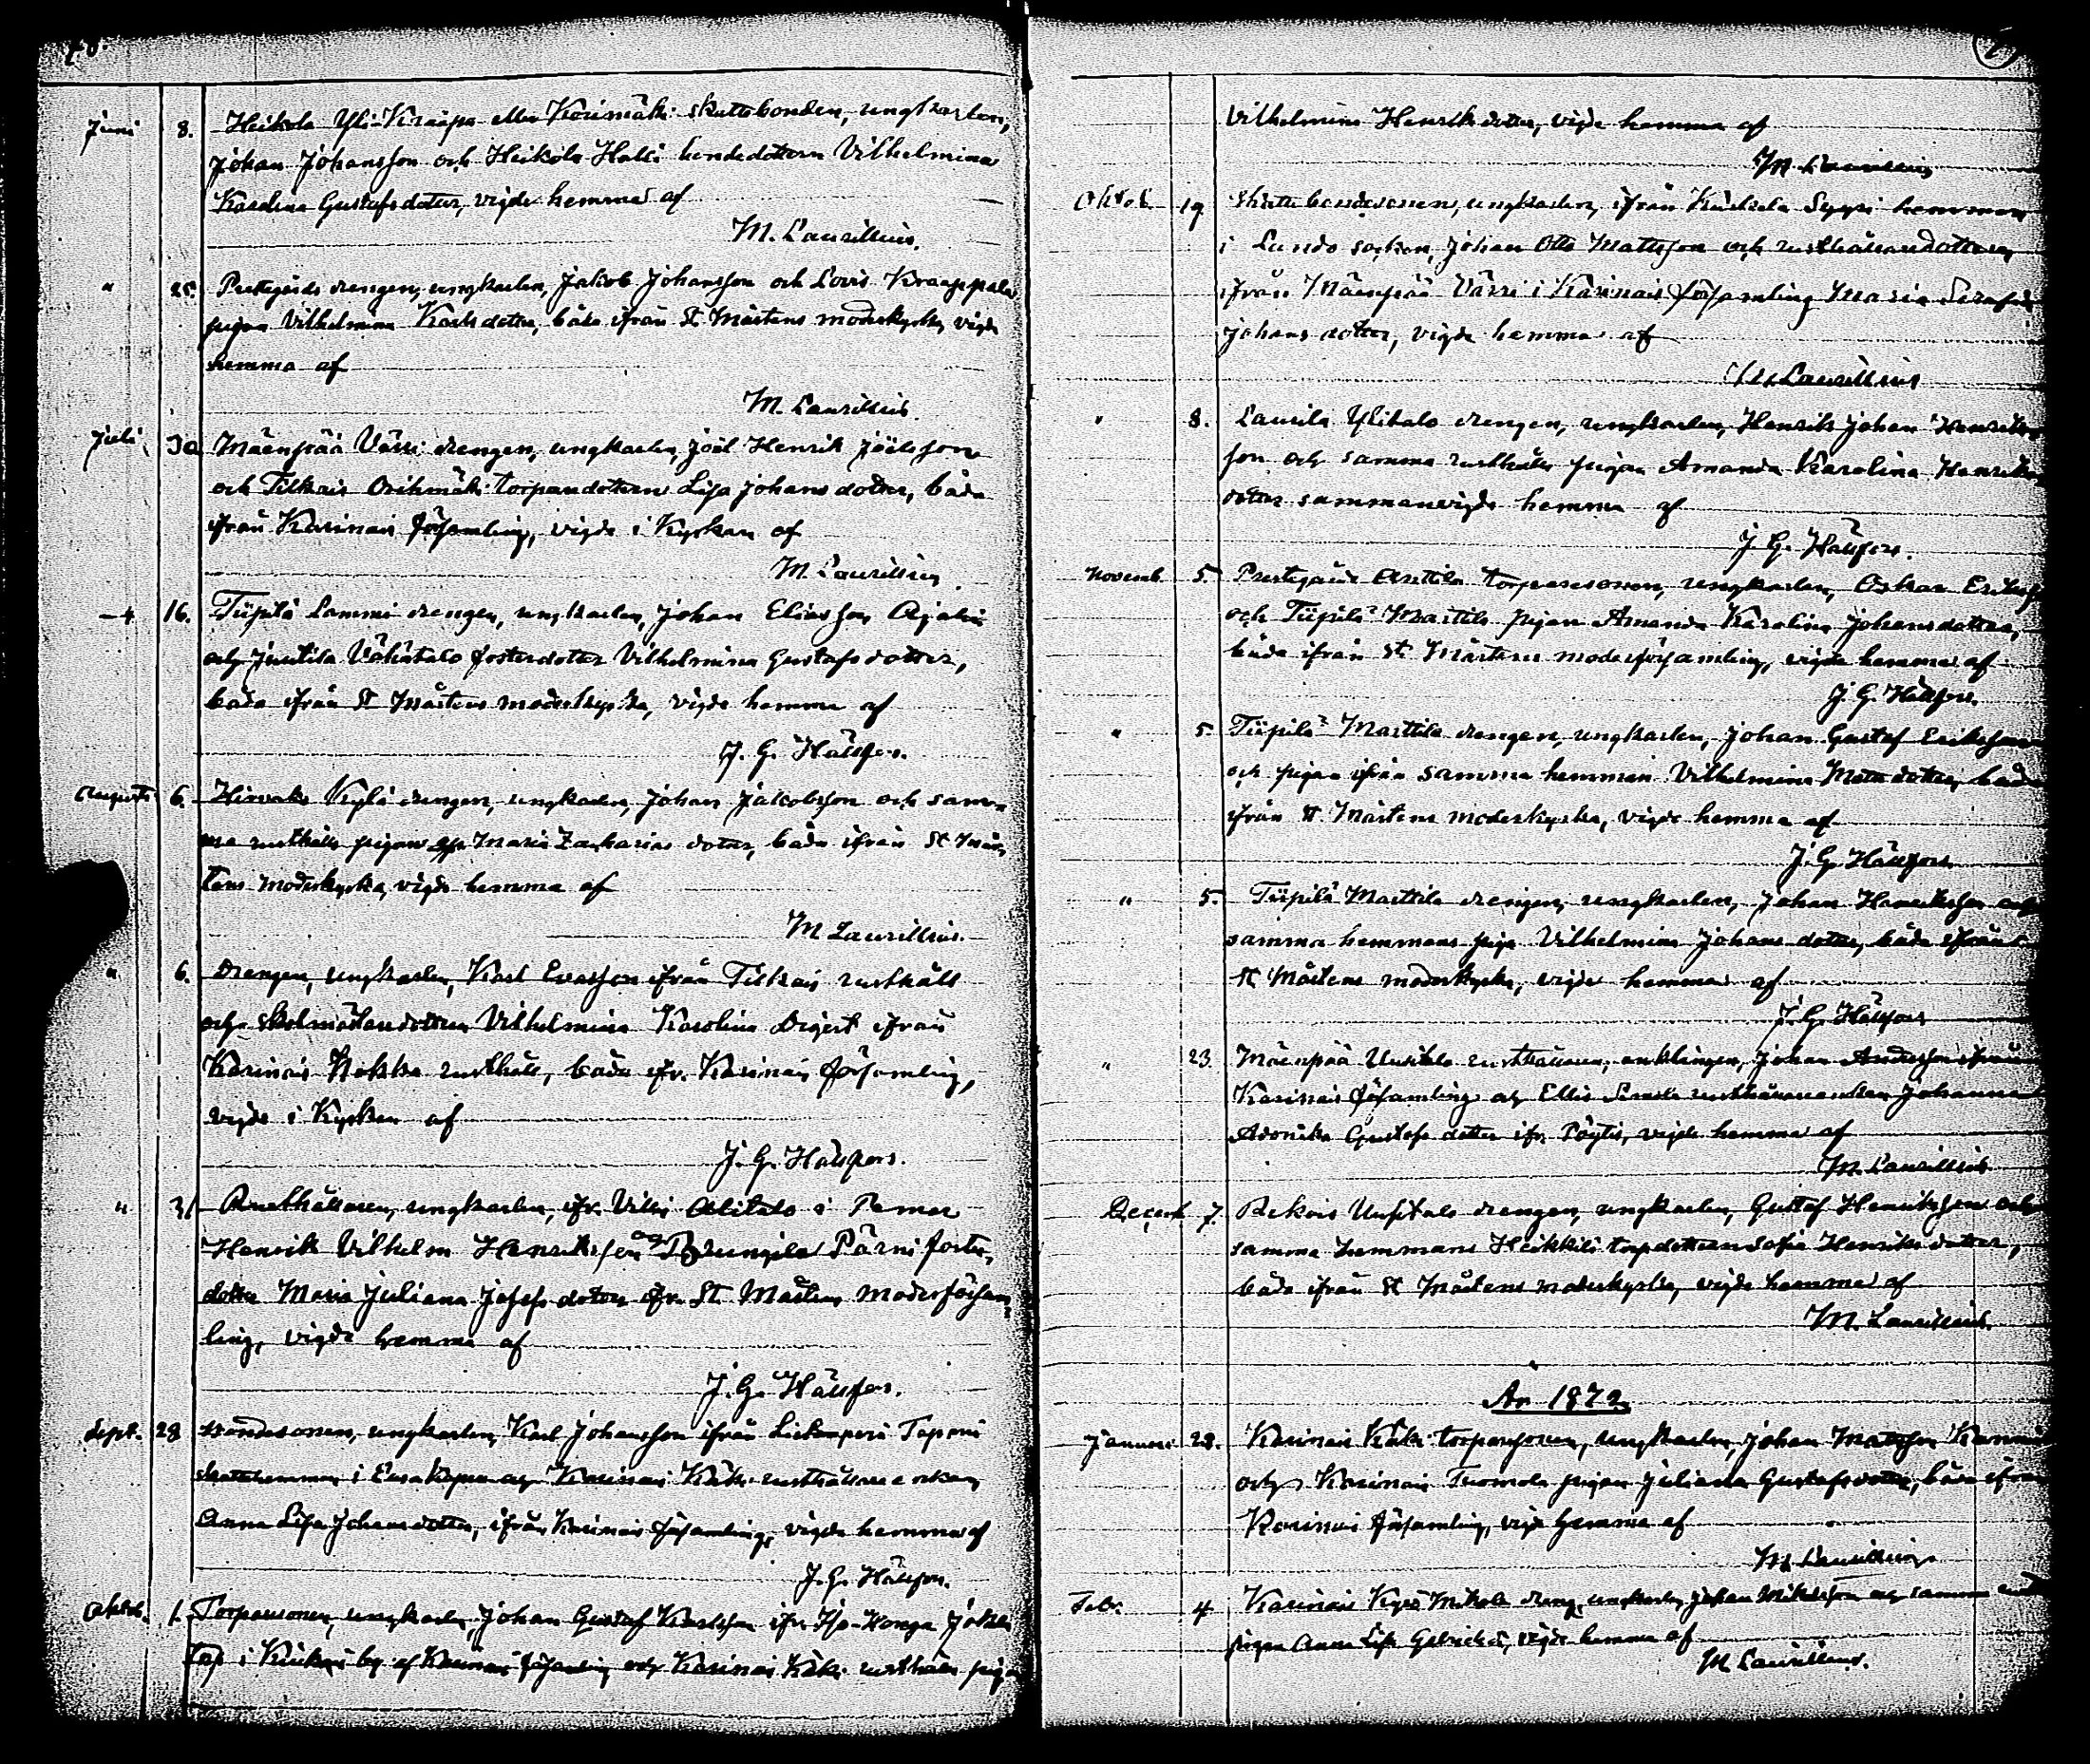 Juni 8. Heikola Yli-Kraapa eller Korimäki skattebonden, ungkarlen,
Johan Johansson och Heikola Halki bondedottern Vilhelmina
Karolina Gustafsdotter, vigde hemma af
M. Laurillius.
" 25. Prestgårds drengen, ungkarlen, Jakob Johansson och Kraappala
pigan Vilhelmina Karlsdotter, båda ifrån St Mårtens moderkyrka, vigde
hemma af
M. Laurillius.
Juli 30 Mäenpää Värri drengen, ungkarlen, Joël Henrik Joëlsson
och Tilkais torpardottern Lisa Johansdotter, båda
ifrån Karinais församling, vigde i Kyrkan af
M Laurillius
16. Tiipilä Lammi drengen, ungkarlen, Johan Eliasson
och Juntila Vähätalo fosterdotter Vilhelmina Gustafsdotter,
båda ifrån St Mårtens moderkyrka, vigde hemma af
J. G. Hällfors.
Augusti 6. Hirvas Kylä drengen, ungkarlen, Johan Jakobsson och sam-
ma rusthålls pigan Maria Zacharias dotter, båda ifrån St Mår-
tens moderkyrka, vigde hemma af
M Laurillius.
" 6. Drengen, ungkarlen, Karl Evasson ifrån Tilkais rusthåll
och skolmästaredottren Vilhelmina Karolina Digert ifrån
Karinais Kokka rusthåll, båda ifr. Karinais församling,
vigde i Kyrkan af
J. G. Hällfors.
" 31 Rusthållaren, ungkarlen, ifr. Villis Alitalo i Pemar
Henrik Vilhelm Henriksson och Prunnila Pärni foster-
dotter Maria Juliana Josefsdotter ifr. St Mårtens moderförsam-
ling, vigde hemma af
J. G. Hällfors.
Sept. 28 Bondesonen, ungkarlen, Karl Johansson ifrån Liekoperä Taponi
skattehemman i Eura Kapell och Karinais Käki rusthållare enkan
Anna Lisa Johansdotter, ifrån Karinais församling, vigde hemma af
J. G. Hällfors.
Oktob. 1. Torparsonen, ungkarlen, Johan Gustaf Karlsson ifr. Iso-Honga Jokela
torp i by af Karinais församling och Karinais Käki rusthålls pigan
Vilhelmina Henriksdotter, vigde hemma af
M. Laurillius
Oktob. 19 Skattebondesonen, ungkarlen, ifrån hemman
i Lundo socken, Johan Otto Mattsson och rusthållaredottern
ifrån Mäenpää Värri i Karinais församling Maria Serafina
Johansdotter, vigde hemma af
M. Laurillius
" 8. Laurila Ylitalo drengen, ungkarlen, Henrik Johan Henriks-
son och samma rusthålls pigan Amanda Karolina Henriks
dotter sammanvigde hemma af
J. G. Hällfors.
Novemb. 5. Prestgårds Anttila torparesonen, ungkarlen, Oskar Eriksson
och Tiipilä Marttila pigan Amanda Karolina Johansdotter,
båda ifrån St Mårtens moderförsamling, vigde hemma af
J. G. Hällfors.
" 5. Tiipilä Marttila drengen, ungkarlen, Johan Gustaf Eriksson
och pigan ifrån samma hemman Vilhelmina Matsdotter, båda
ifrån St Mårtens moderkyrka, vigde hemma af
J. G. Hällfors
" 5. Tiipilä Marttila drengen, ungkarlen, Johan Henriksson och
samma hemmans piga Vilhelmina Johansdotter, båda ifrån
St Mårtens moderkyrka, vigde hemma af
J. G. Hällfors
" 23. Mäenpää Uusitalo rusthållaren, enklingen, Johan Andersson ifrån
Karinais församling och Ellis rusthållareenkan Johanna
Gustafsdotter ifr. Pöytis, vigde hemma af
M. Laurillius
Decemb. 7. Rekois Uusitalo drengen, ungkarlen, Gustaf Henriksson och
samma hemmans Heikkilä torpdottern Sofia Henriksdotter,
båda ifrån St Mårtens moderkyrka, vigde hemma af
M. Laurillius.
År 1872
Januari 28. Karinais Käki torparsonen, ungkarlen, Johan Mattsson
och Karinais Tuomola pigan Juliana Gustafsdotter, båda ifrån
Karinais församling, vigde hemma af
M. Laurillius
Febr. 4 Karinais Kyrö Mikola dreng, ungkarlen, Johan Mikelsson och samma
pigan Anna Lisa vigde hemma af
M Laurillius.